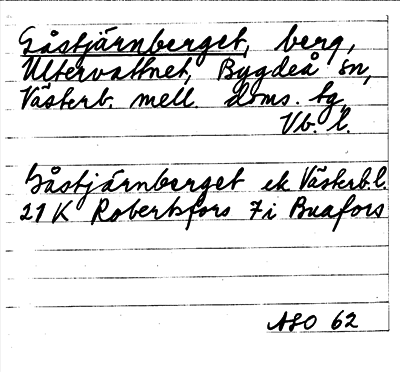 Gåstjärnberget, berg,
Ultervattnet, Bygdeå sn,
Västerb. mell. doms. tg
Vb. l.
Gåstjärnberget ek Västerb.l.
21K Robertsfors 7i Buafors
ASO 62